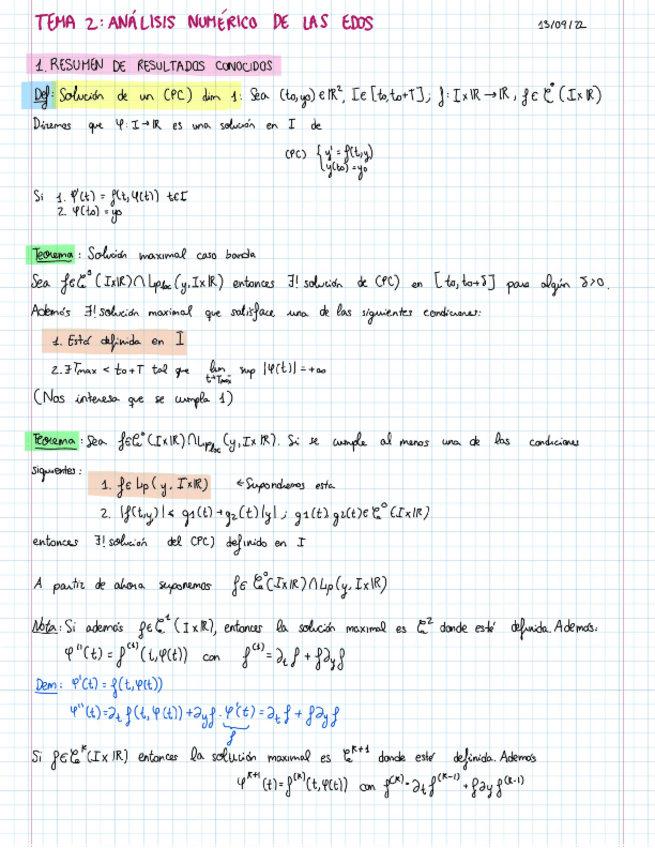 TEMA 2: ANÁLISIS NUMÉRICO DE LAS EDOS 13/09/22
1. RESUMEN DE RESULTADOS CONOCIDOS
Def: Solución de un (PC) dim 1: Sea (to,yo) ∈ ℝ², I∈[to,to+T]; f: I×ℝ→ℝ, f∈ C°(I×ℝ)
Diremos que φ: I→ℝ es una solución en I de
(PC) { y' = f(t,y)
y(to) = yo
Si 1. φ'(t) = f(t,φ(t)) t∈I
2. φ(to) = yo
Teorema: Solución maximal caso banda
Sea f∈C°(I×ℝ)∩Lploc(y,I×ℝ) entonces ∃! solución de (PC) en [to,to+δ] para algún δ>0.
Además ∃! solución maximal que satisface una de las siguientes condiciones:
1. Está definida en I
2. ∃Tmax < to+T tal que lim t→Tmax sup |φ(t)| = +∞
(Nos interesa que se cumpla 1)
Teorema: Sea f∈C°(I×ℝ)∩Lploc(y,I×ℝ). Si se cumple al menos una de las condiciones
siguientes:
1. f∈Lp(y,I×ℝ) ← Supondremos esta
2. |f(t,y)| ≤ g1(t)+g2(t)|y|; g1(t) g2(t)∈C°(I×ℝ)
entonces ∃! solución del (PC) definido en I
A partir de ahora suponemos f∈C°(I×ℝ)∩Lp(y,I×ℝ)
Nota: Si además f∈C¹(I×ℝ), entonces la solución maximal es C² donde esté definida. Además:
φ''(t) = f⁽¹⁾(t,φ(t)) con f⁽¹⁾ = ∂t f + f∂y f
Dem: φ'(t) = f(t,φ(t))
φ''(t) = ∂t f(t,φ(t)) + ∂y f · φ'(t) = ∂t f + f∂y f
f
Si f∈Cᵏ(I×ℝ) entonces la solución maximal es Cᵏ⁺¹ donde esté definida. Además
φᵏ⁺¹(t) = f⁽ᵏ⁾(t,φ(t)) con f⁽ᵏ⁾ = ∂t f⁽ᵏ⁻¹⁾ + f∂y f⁽ᵏ⁻¹⁾